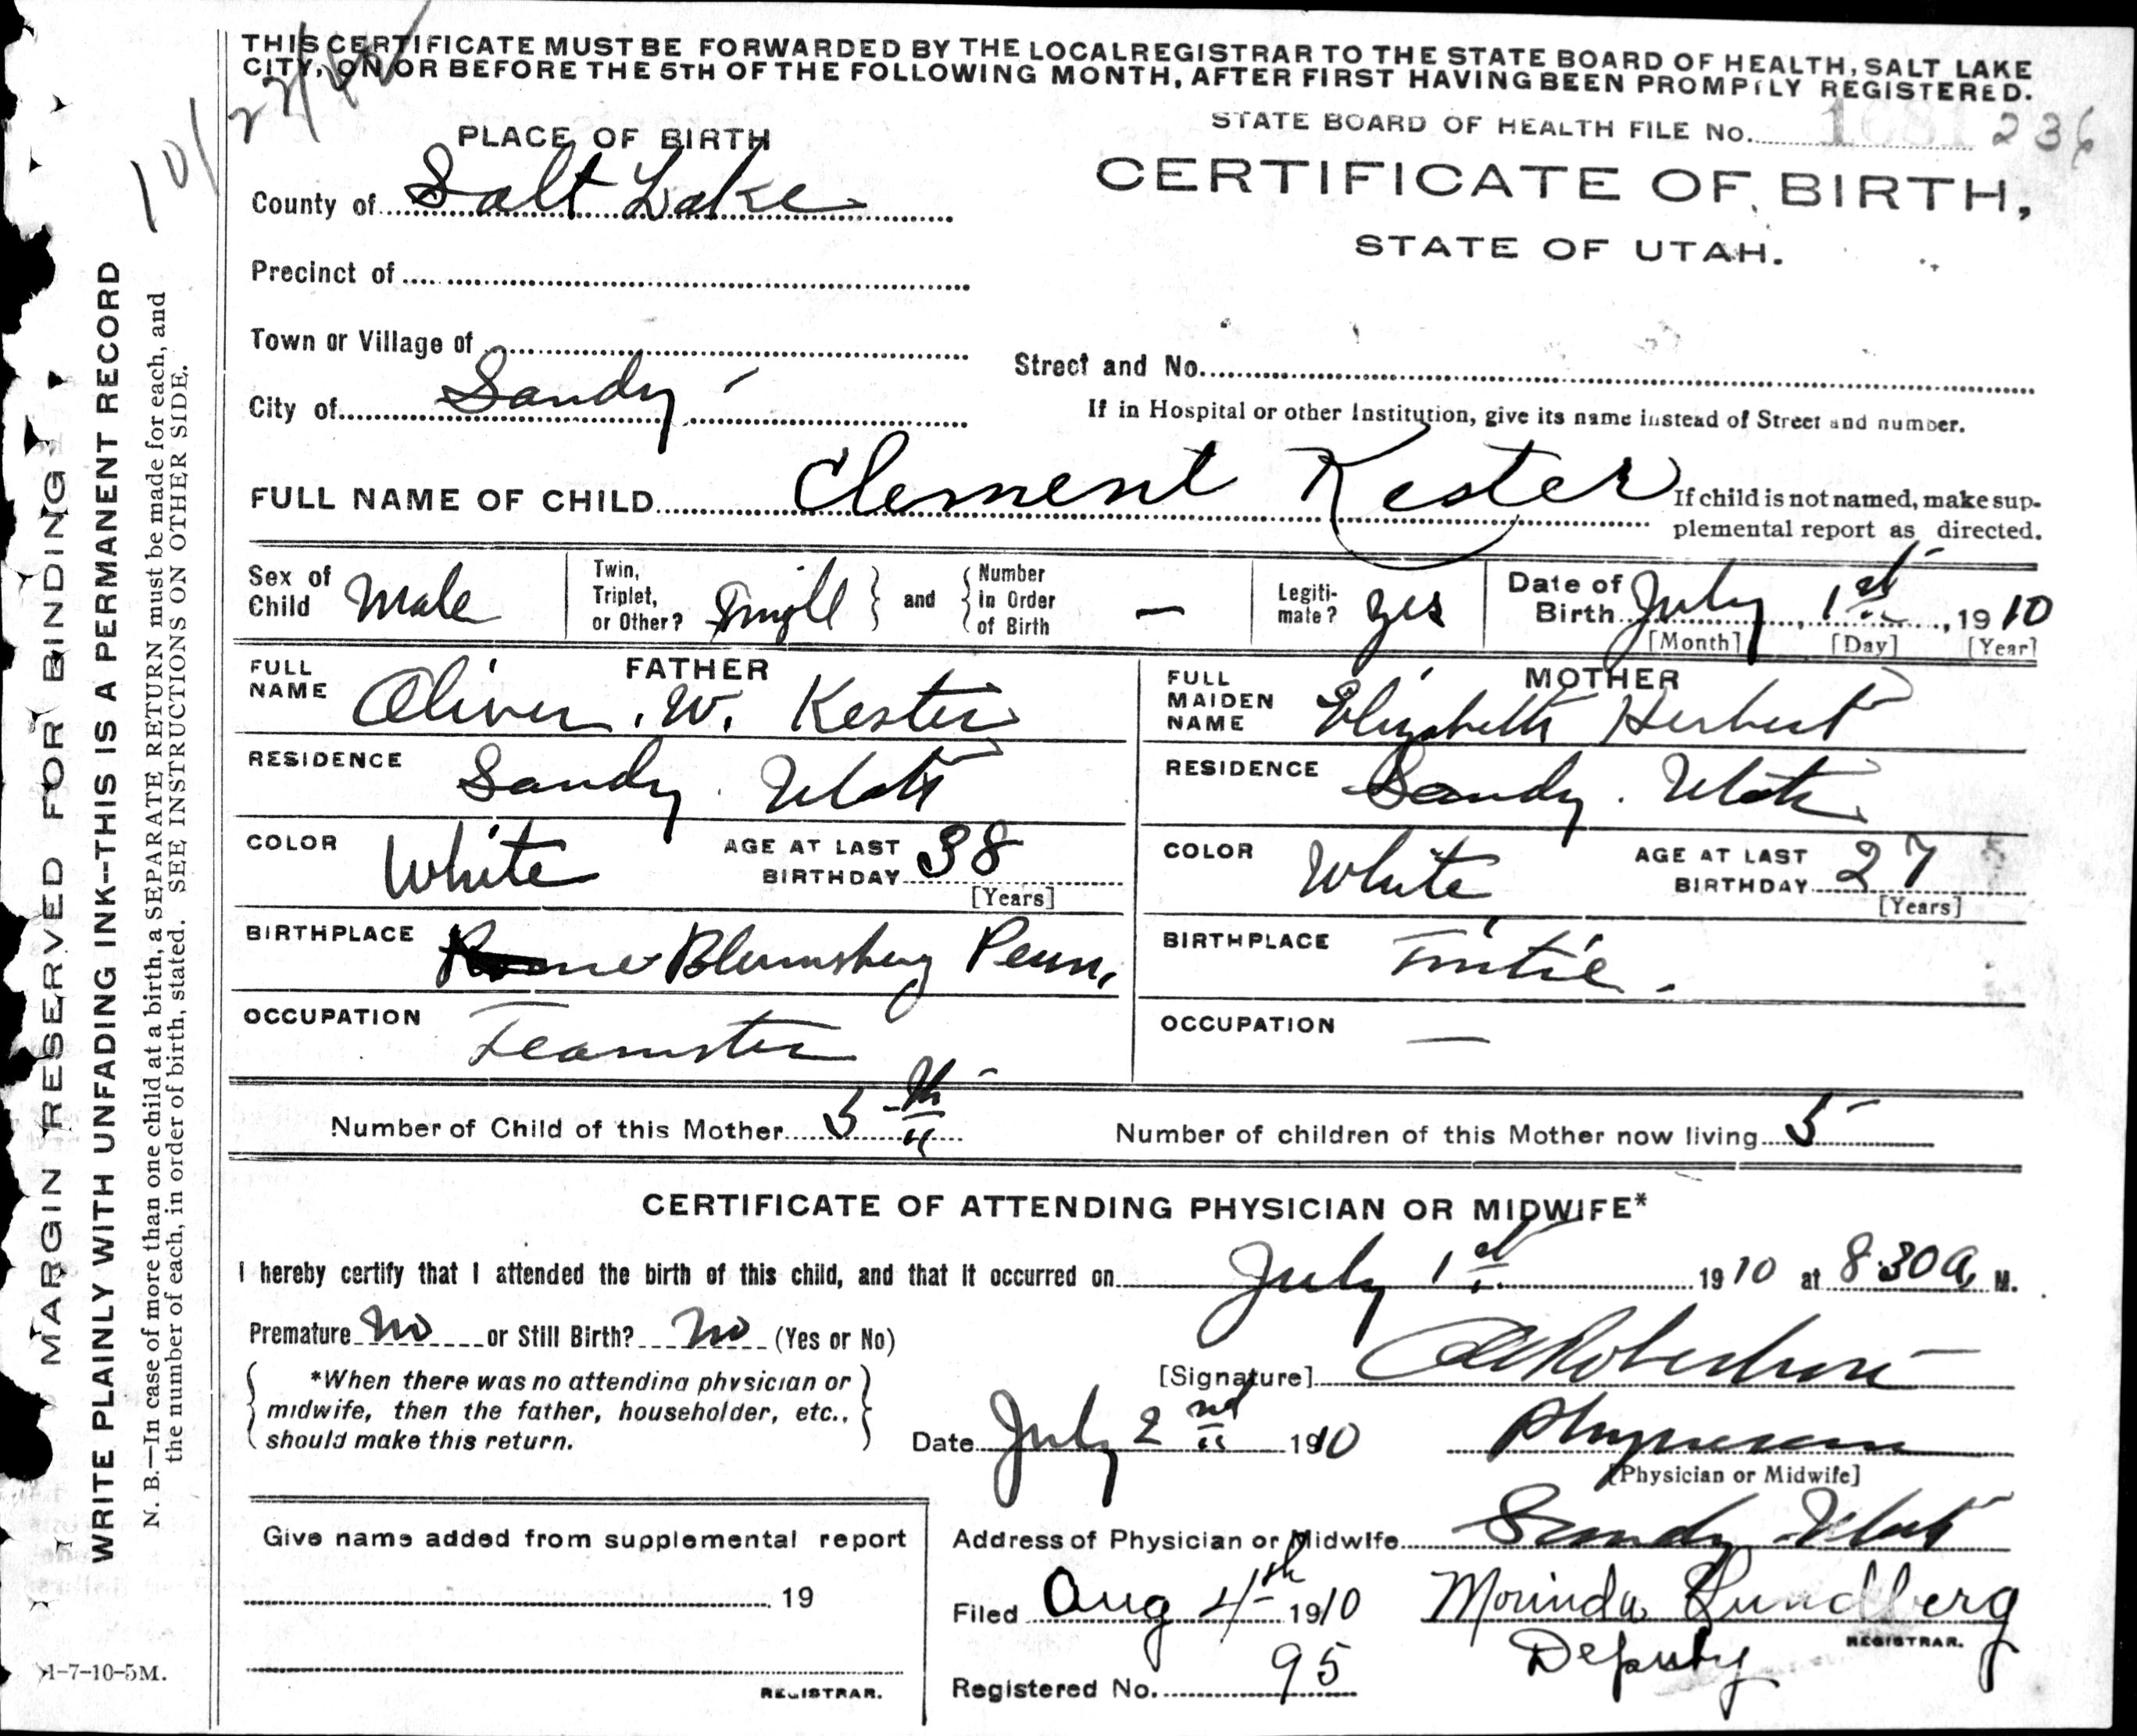 THIS CERTIFICATE MUST BE FORWARDED BY THE LOCAL REGISTRAR TO THE STATE BOARD OF HEALTH, SALT LAKE
CITY, ON OR BEFORE THE 5TH OF THE FOLLOWING MONTH, AFTER FIRST HAVING BEEN PROMPTLY REGISTERED.
STATE BOARD OF HEALTH FILE No. 236
PLACE OF BIRTH
CERTIFICATE OF BIRTH,
STATE OF UTAH.
County of Salt Lake
Precinct of
Town or Village of
Street and No.
City of Sandy
If in Hospital or other Institution, give its name instead of Street and number.
FULL NAME OF CHILD Clement Kester
If child is not named, make sup-
plemental report as directed.
Sex of Child Male
Twin, Triplet, or Other? Single and Number in Order of Birth —
Legiti-mate? yes
Date of Birth July 1st, 1910
[Month] [Day] [Year]
FATHER
FULL NAME Oliver. W. Kester
RESIDENCE Sandy. Utah
COLOR White AGE AT LAST BIRTHDAY 38
[Years]
BIRTHPLACE Blumsburg Penn,
OCCUPATION Teamster
MOTHER
FULL MAIDEN NAME Elizabeth Herbert
RESIDENCE Sandy. Utah
COLOR White AGE AT LAST BIRTHDAY 27
[Years]
BIRTHPLACE Tintic.
OCCUPATION —
Number of Child of this Mother 5th Number of children of this Mother now living 5
CERTIFICATE OF ATTENDING PHYSICIAN OR MIDWIFE*
I hereby certify that I attended the birth of this child, and that it occurred on July 1st 1910 at 8:30 a. M.
Premature No or Still Birth? No (Yes or No)
*When there was no attending physician or
midwife, then the father, householder, etc.,
should make this return.
[Signature] Robertson
Date July 2nd 1910 Physician
[Physician or Midwife]
Give name added from supplemental report
19
REGISTRAR.
Address of Physician or Midwife Sandy Utah
Filed Aug 4th 1910 Morinda Lundberg
Deputy REGISTRAR.
Registered No. 95
MARGIN RESERVED FOR BINDING
WRITE PLAINLY WITH UNFADING INK--THIS IS A PERMANENT RECORD
N. B.—In case of more than one child at a birth, a SEPARATE RETURN must be made for each, and
the number of each, in order of birth, stated. SEE INSTRUCTIONS ON OTHER SIDE.
1-7-10-5M.